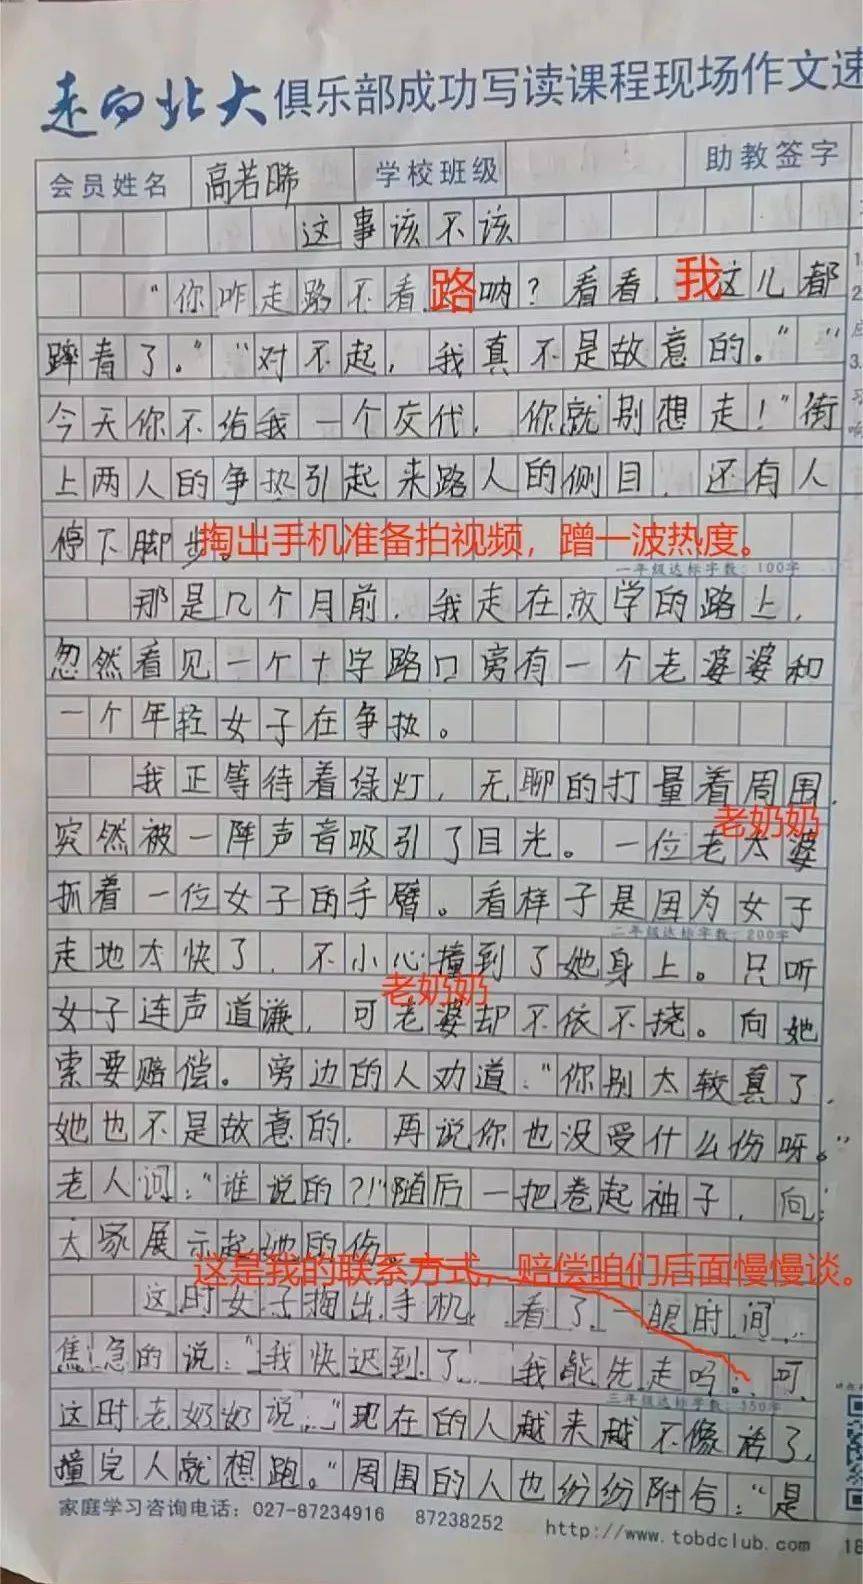 走向北大 俱乐部成功写读课程现场作文速
会员姓名 高若晞 学校班级 助教签字
这事该不该
“你咋走路不看路呐？看看，我这儿都
蹿青了。”“对不起，我真不是故意的。”“
今天你不给我一个交代，你就别想走！”街
上两人的争执引起来路人的侧目，还有人
停下脚步。掏出手机准备拍视频，蹭一波热度。
一年级达标字数：100字
那是几个月前，我走在放学的路上，
忽然看见一个十字路口旁有一个老婆婆和
一个年轻女子在争执。
我正等待着绿灯，无聊的打量着周围，
老奶奶
突然被一阵声音吸引了目光。一位老太婆
抓着一位女子的手臂。看样子是因为女子
二年级达标字数：200字
走地太快了，不小心撞到了她身上。只听
老奶奶
女子连声道谦，可老婆却不依不挠。向她
索要赔偿。旁边的人劝道：“你别太较真了，
她也不是故意的，再说你也没受什么伤呀。”
老人问：“谁说的？！”随后一把卷起袖子，向
大家展示起她的伤。
这是我的联系方式，赔偿咱们后面慢慢谈。
这时女子掏出手机，看了一眼时间，
焦急的说：“我快迟到了，我能先走吗。可
三年级达标字数：350字
这时老奶奶说：“现在的人越来越不像话了，
撞完人就想跑。”周围的人也纷纷附合：“是
家庭学习咨询电话：027-87234916 87238252 http://www.tobdclub.com 18